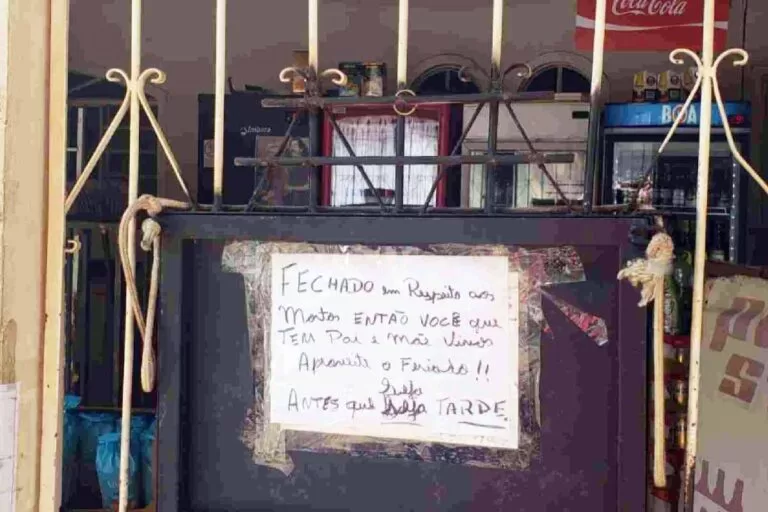 Coca-Cola
BOA
FECHADO em Respeito aos
Mortos ENTÃO VOCÊ que
TEM Pai e Mãe Vivos
Aproveite o Feriado !!
Seja
ANTES que Seja TARDE.